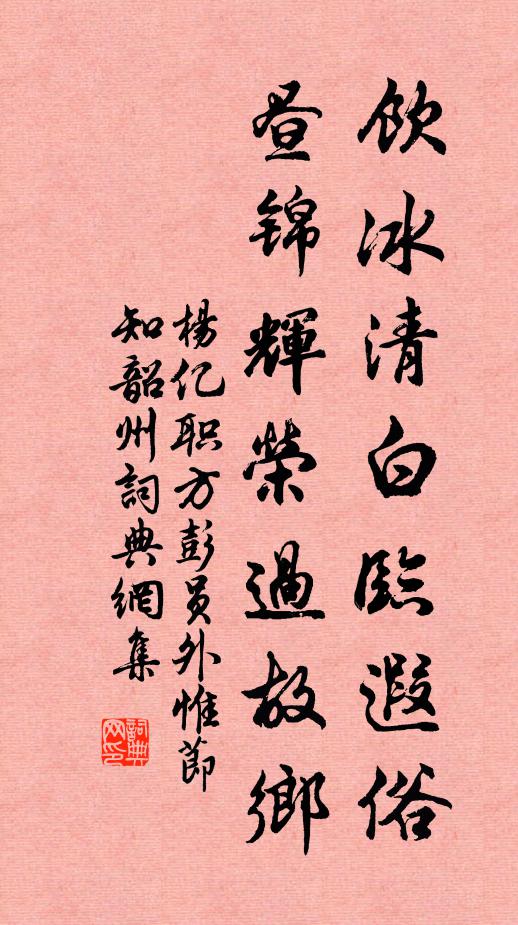 飲冰清白臨遐俗
昼锦輝榮過故鄉
楊亿职方彭員外惟節
知韶州詞典網集
詞典网印